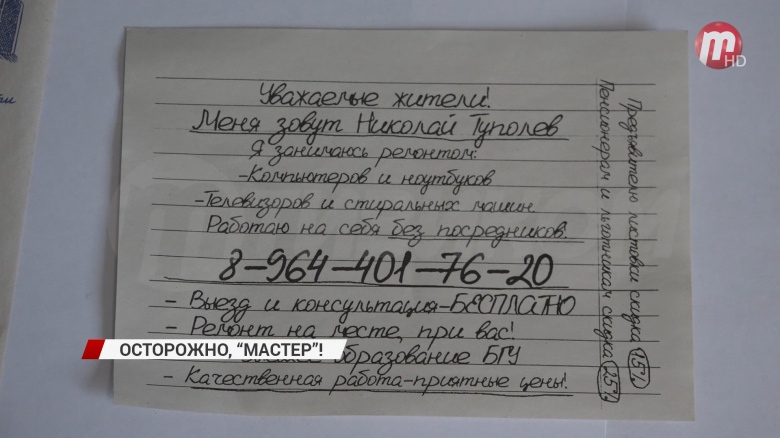 Уважаемые жители!
Меня зовут Николай Туполев
Я занимаюсь ремонтом:
-Компьютеров и ноутбуков
-Телевизоров и стиральных машин.
Работаю на себя без посредников.
8-964-401-76-20
- Выезд и консультация-БЕСПЛАТНО
- Ремонт на месте, при вас!
образование БГУ
- Качественная работа-приятные цены!
Предъявителю листовки скидка 15%
Пенсионерам и льготникам скидка 25%
ОСТОРОЖНО, "МАСТЕР"!
m HD